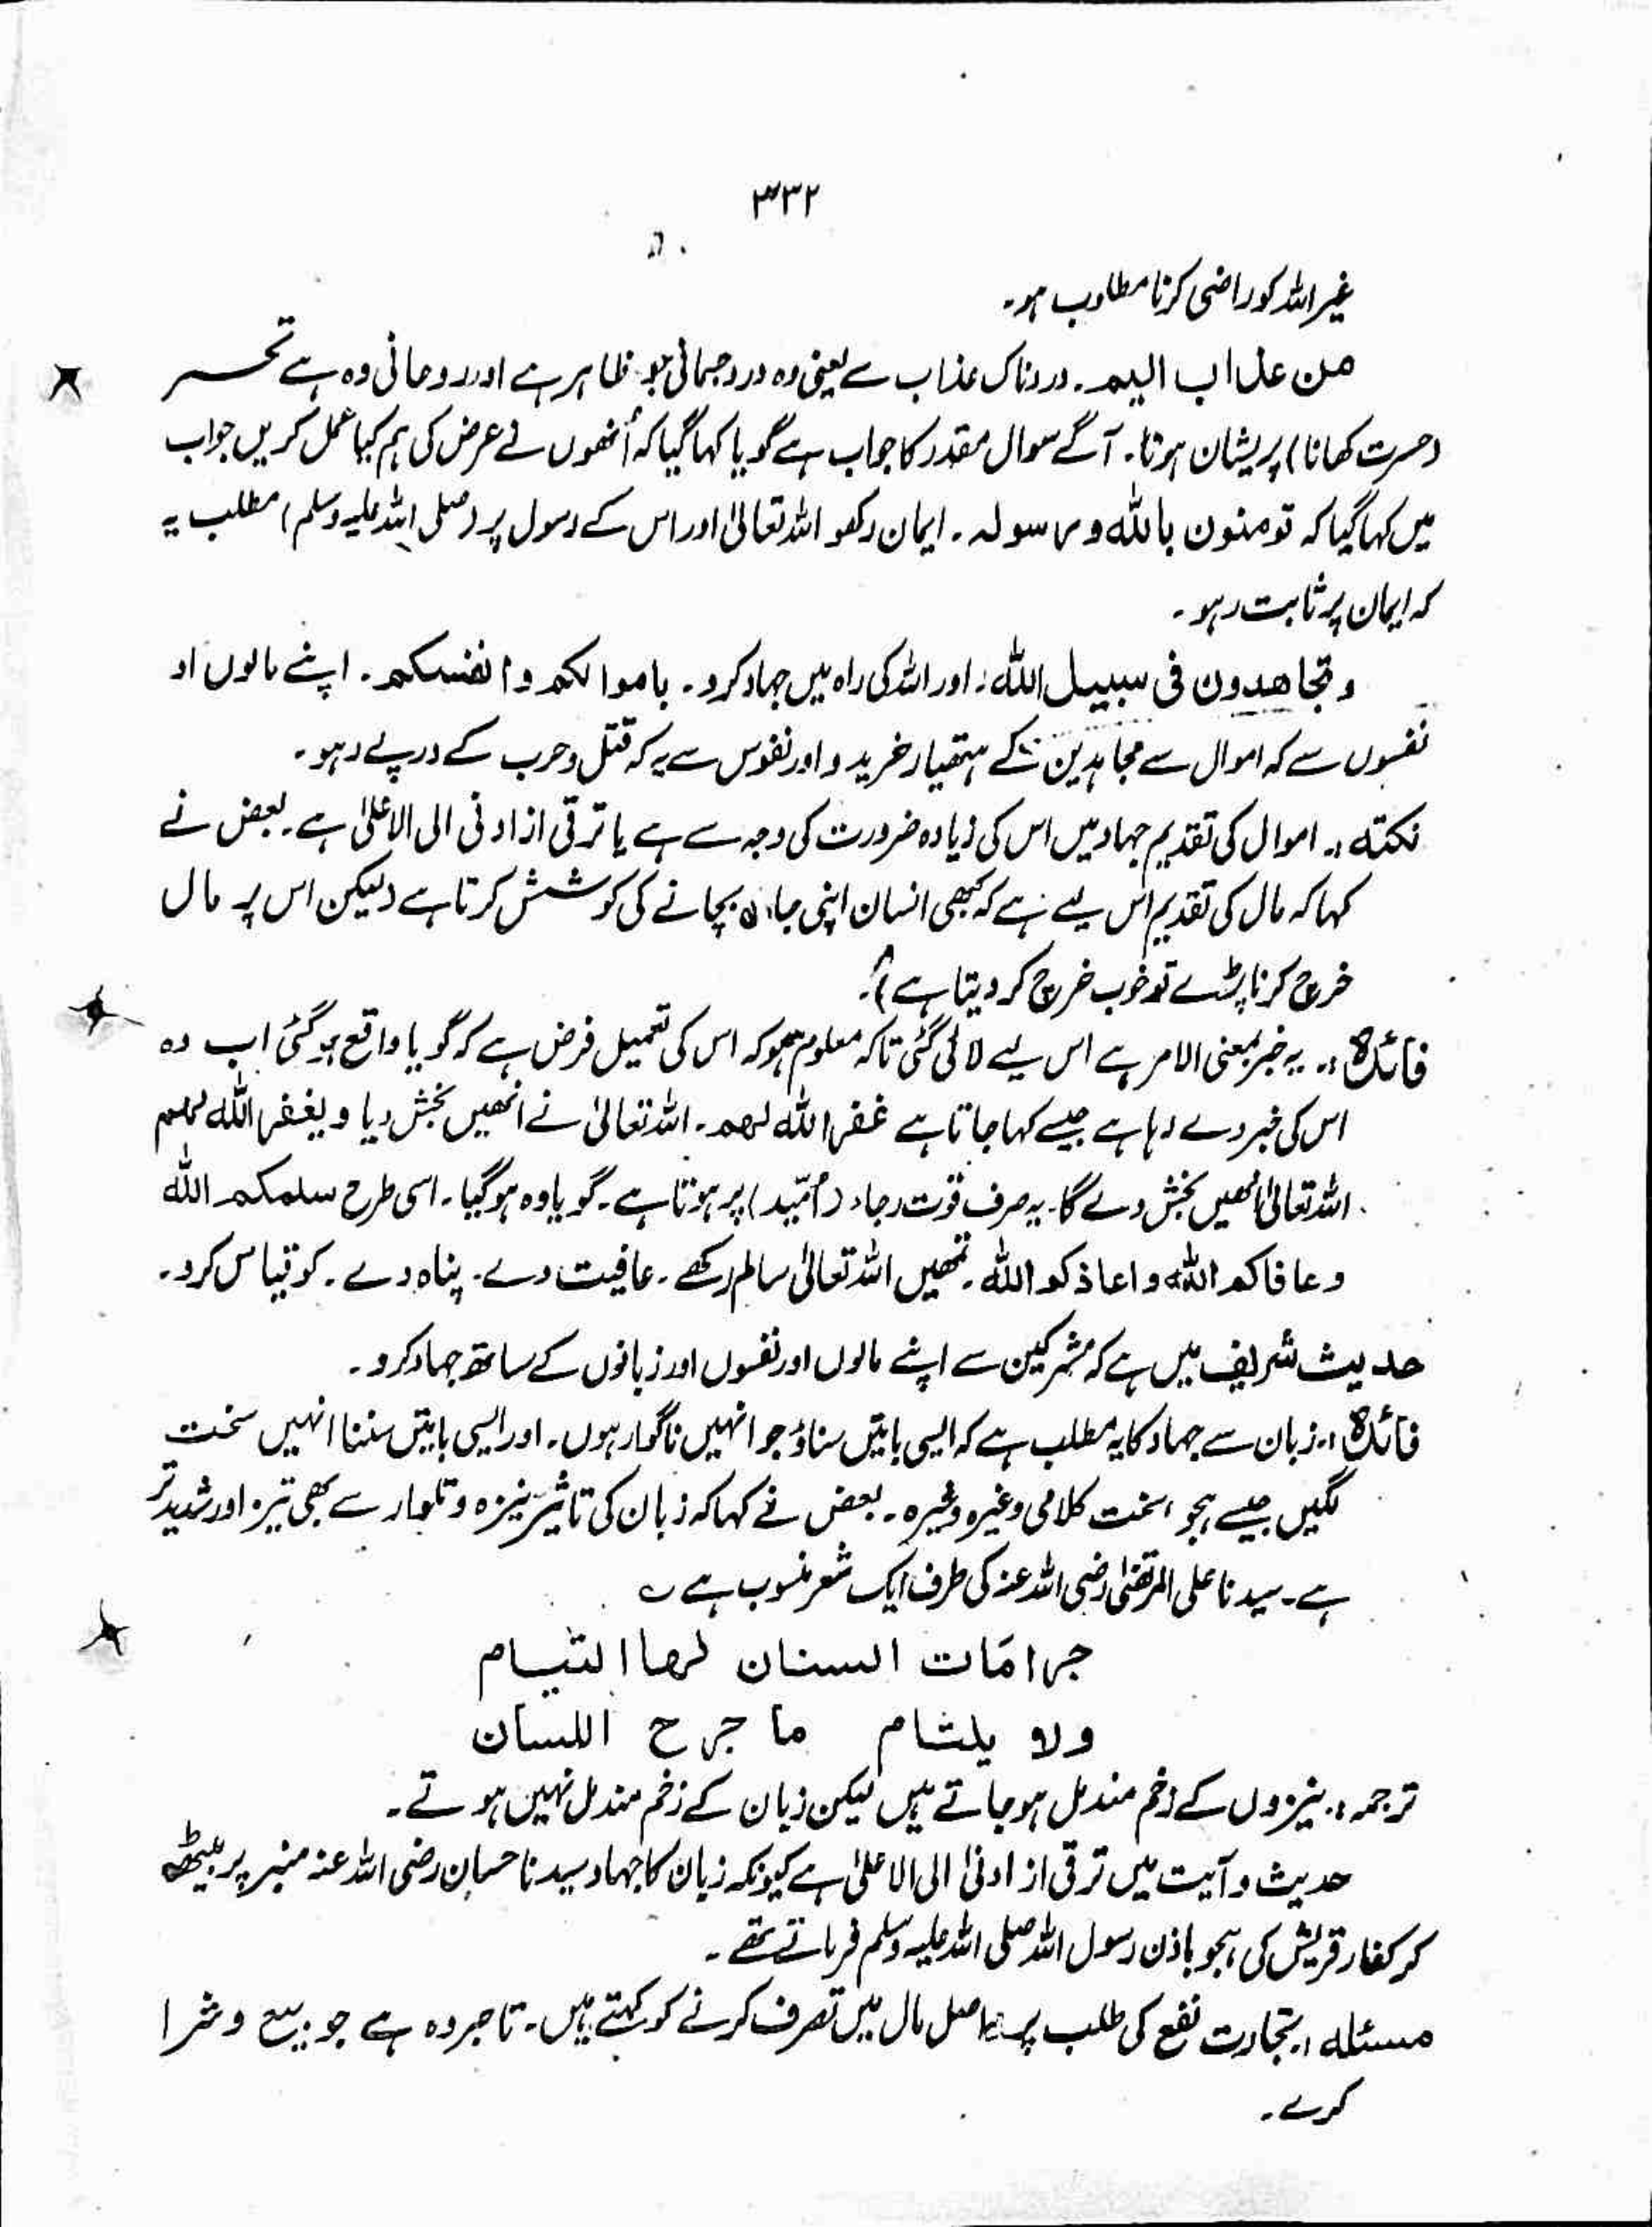 ۳۳۲
غیر اللہ کو راضی کرنا مطلوب ہو۔
من عذاب الیم۔ دردناک عذاب سے یعنی وہ درد جسمانی ہو ظاہر ہے اور روحانی وہ ہے تحسر
(حسرت کھانا) پریشان ہونا۔ آگے سوال مقدر کا جواب ہے گویا کہا گیا کہ اُنھوں نے عرض کی ہم کیا عمل کریں جواب
میں کہا گیا کہ تومنون باللہ ورسولہ۔ ایمان رکھو اللہ تعالیٰ اور اس کے رسول پر (صلی اللہ علیہ وسلم) مطلب یہ
کہ ایمان پر ثابت رہو۔
وتجاھدون فی سبیل اللہ۔ اور اللہ کی راہ میں جہاد کرو۔ باموالکم وانفسکم۔ اپنے مالوں اور
نفسوں سے کہ اموال سے مجاہدین کے ہتھیار خریدو اور نفوس سے یہ کہ قتل و حرب کے درپے رہو۔
نکتہ :۔ اموال کی تقدیم جہاد میں اس کی زیادہ ضرورت کی وجہ سے ہے یا ترقی از ادنی الی الاعلیٰ ہے۔ بعض نے
کہا کہ مال کی تقدیم اس لیے ہے کہ کبھی انسان اپنی جان بچانے کی کوشش کرتا ہے (لیکن اس پر مال
خرچ کرنا پڑے تو خوب خرچ کر دیتا ہے)۔
فائدہ :۔ یہ خبر بمعنی الامر ہے اس لیے لائی گئی تاکہ معلوم ہو کہ اس کی تعمیل فرض ہے کہ گویا واقع ہو گئی اب وہ
اس کی خبر دے رہا ہے جیسے کہا جاتا ہے غفر اللہ لھم۔ اللہ تعالیٰ نے انھیں بخش دیا ویغفر اللہ لھم
اللہ تعالیٰ انھیں بخش دے گا۔ یہ صرف قوت رجاء (اُمید) پر ہوتا ہے۔ گویا وہ ہو گیا۔ اسی طرح سلمکم اللہ
وعافاکم اللہ واعاذکم اللہ۔ تمھیں اللہ تعالیٰ سالم رکھے۔ عافیت دے۔ پناہ دے۔ کو قیاس کرو۔
حدیث شریف میں ہے کہ مشرکین سے اپنے مالوں اور نفسوں اور زبانوں کے ساتھ جہاد کرو۔
فائدہ :۔ زبان سے جہاد کا یہ مطلب ہے کہ ایسی باتیں سناؤ جو انہیں ناگوار ہوں۔ اور ایسی باتیں سننا انہیں سخت
لگیں جیسے ہجو، سخت کلامی وغیرہ وغیرہ۔ بعض نے کہا کہ زبان کی تاثیر نیزہ و تلوار سے بھی تیز اور شدید تر
ہے۔ سیدنا علی المرتضیٰ رضی اللہ عنہ کی طرف ایک شعر منسوب ہے ؎
جراحات السنان لھا التیام
ولا یلتام ما جرح اللسان
ترجمہ :۔ نیزوں کے زخم مندمل ہو جاتے ہیں لیکن زبان کے زخم مندمل نہیں ہوتے۔
حدیث و آیت میں ترقی از ادنیٰ الی الاعلیٰ ہے کیونکہ زبان کا جہاد سیدنا حسان رضی اللہ عنہ منبر پر بیٹھ
کر کفار قریش کی ہجو باذن رسول اللہ صلی اللہ علیہ وسلم فرماتے تھے۔
مسئلہ :۔ تجارت نفع کی طلب پر اصل مال میں تصرف کرنے کو کہتے ہیں۔ تاجر وہ ہے جو بیع و شرا
کرے۔